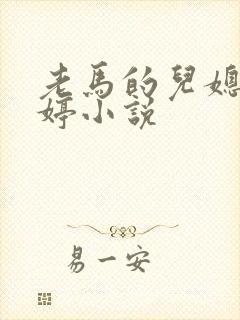 老馬的兒媳
婷小說
易一安